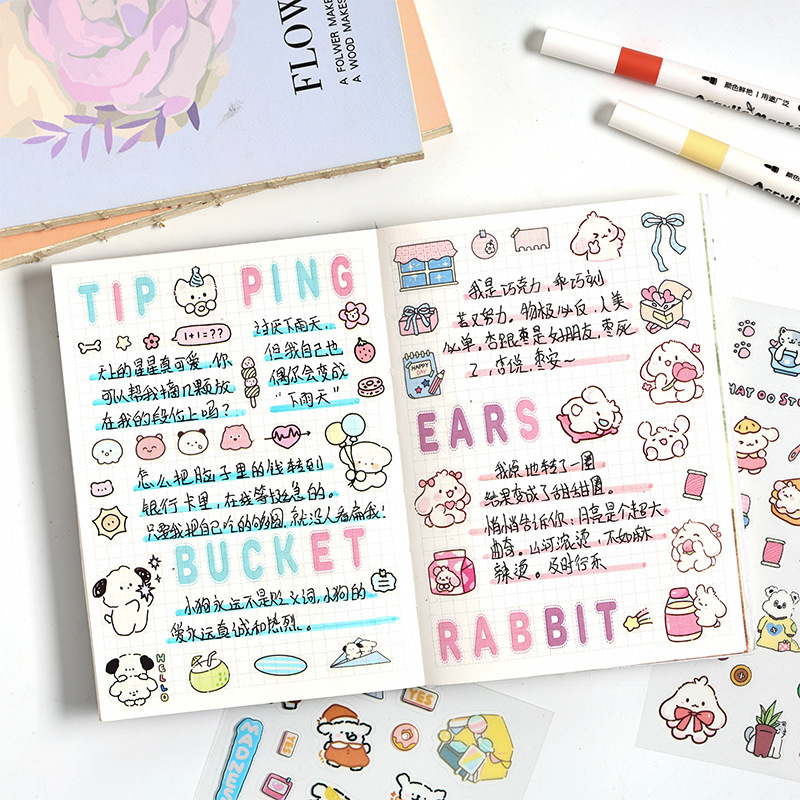 FLOW
A FOLWER MAKE
A WOOD MAKES
颜色鲜艳 | 用途广泛
颜色
TIP PING
1+1=??
天上的星星真可爱，你
可以帮我摘几颗放
在我的段位上吗？
讨厌下雨天，
但我自己也
偶尔会变成
“下雨天”
怎么把脑子里的钱转到
银行卡里，在线等挺急的。
只要我把自己吃的够圆，就没人看扁我！
BUCKET
小狗永远不是贬义词，小狗的
爱永远真诚和热烈。
HELLO
我是巧克力，乖巧刻
苦又努力。物极必反，人美
必单。杏跟枣是好朋友，枣死
了，杏说，枣安～
HAPPY
DAY
EARS
我原地转了一圈
结果变成了甜甜圈。
悄悄告诉你：月亮是个超大
曲奇。山河滚烫，不如麻
辣烫。及时行乐
RABBIT
MAY OO ST
YES
YES